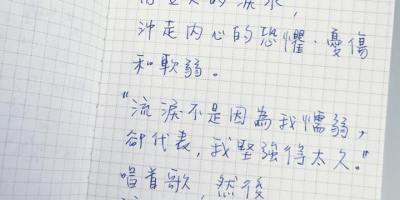 的淚水,
沖走內心的恐懼、憂傷
和軟弱。
"流淚不是因為我懦弱,
卻代表,我堅強得太久。"
唱着歌,然後